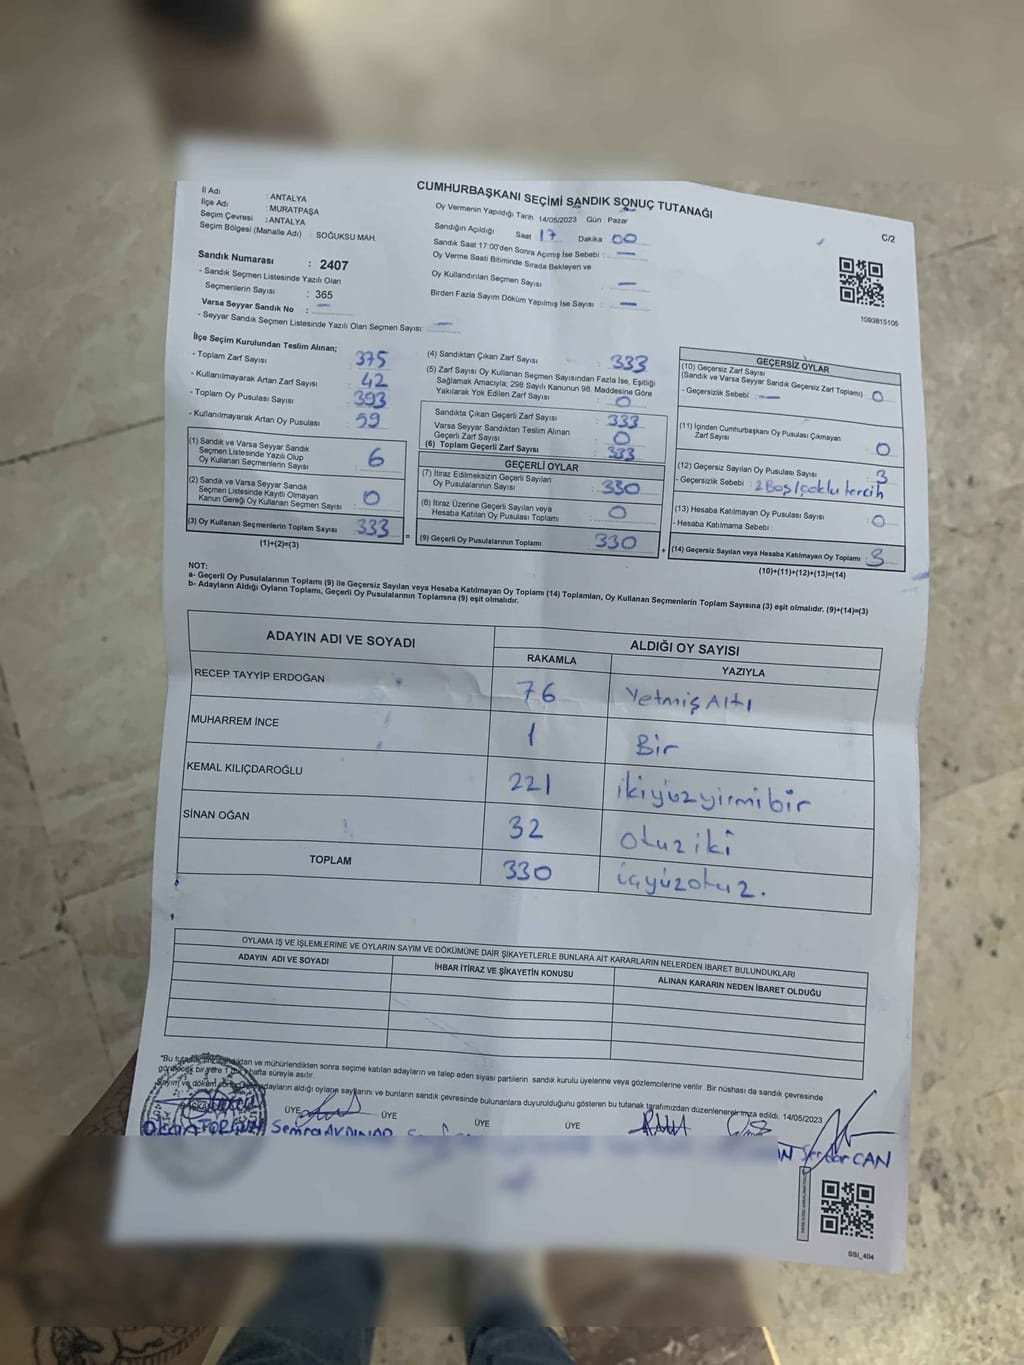 CUMHURBAŞKANI SEÇİMİ SANDIK SONUÇ TUTANAĞI
C/2
İli Adı : ANTALYA
İlçe Adı : MURATPAŞA
Seçim Çevresi : ANTALYA
Seçim Bölgesi (Mahalle Adı) : SOĞUKSU MAH.
Sandık Numarası : 2407
- Sandık Seçmen Listesinde Yazılı Olan
Seçmenlerin Sayısı : 365
Varsa Seyyar Sandık No : —
- Seyyar Sandık Seçmen Listesinde Yazılı Olan Seçmen Sayısı: —
Oy Vermenin Yapıldığı Tarih 14/05/2023 Gün : Pazar
Sandığın Açıldığı Saat 17 Dakika : 00
Sandık Saat 17:00'den Sonra Açımış İse Sebebi : —
Oy Verme Saati Bitiminde Sırada Bekleyen ve
Oy Kullandırılan Seçmen Sayısı : —
Birden Fazla Sayım Döküm Yapılmış İse Sayısı : —
1093815105
İlçe Seçim Kurulundan Teslim Alınan;
- Toplam Zarf Sayısı : 375
- Kullanılmayarak Artan Zarf Sayısı : 42
- Toplam Oy Pusulası Sayısı : 393
- Kullanılmayarak Artan Oy Pusulası : 59
(1) Sandık ve Varsa Seyyar Sandık
Seçmen Listesinde Yazılı Olup
Oy Kullanan Seçmenlerin Sayısı : 6
(2) Sandık ve Varsa Seyyar Sandık
Seçmen Listesinde Kayıtlı Olmayan
Kanun Gereği Oy Kullanan Seçmen Sayısı : 0
(3) Oy Kullanan Seçmenlerin Toplam Sayısı : 333
(1)+(2)=(3)
(4) Sandıktan Çıkan Zarf Sayısı : 333
(5) Zarf Sayısı Oy Kullanan Seçmen Sayısından Fazla İse, Eşitliği
Sağlamak Amacıyla; 298 Sayılı Kanunun 98. Maddesine Göre
Yakılarak Yok Edilen Zarf Sayısı : 0
Sandıkta Çıkan Geçerli Zarf Sayısı : 333
Varsa Seyyar Sandıktan Teslim Alınan
Geçerli Zarf Sayısı : 0
(6) Toplam Geçerli Zarf Sayısı : 333
GEÇERLİ OYLAR
(7) İtiraz Edilmeksizin Geçerli Sayılan
Oy Pusulalarının Sayısı : 330
(8) İtiraz Üzerine Geçerli Sayılan veya
Hesaba Katılan Oy Pusulası Toplamı : 0
(9) Geçerli Oy Pusulalarının Toplamı : 330
GEÇERSİZ OYLAR
(10) Geçersiz Zarf Sayısı
(Sandık ve Varsa Seyyar Sandık Geçersiz Zarf Toplamı) : 0
- Geçersizlik Sebebi : —
(11) İçinden Cumhurbaşkanı Oy Pusulası Çıkmayan
Zarf Sayısı : 0
(12) Geçersiz Sayılan Oy Pusulası Sayısı : 3
- Geçersizlik Sebebi : 2 Boş 1 çoklu tercih
(13) Hesaba Katılmayan Oy Pusulası Sayısı : 0
- Hesaba Katılmama Sebebi :
(14) Geçersiz Sayılan veya Hesaba Katılmayan Oy Toplamı : 3
(10)+(11)+(12)+(13)=(14)
NOT:
a- Geçerli Oy Pusulalarının Toplamı (9) ile Geçersiz Sayılan veya Hesaba Katılmayan Oy Toplamı (14) Toplamları, Oy Kullanan Seçmenlerin Toplam Sayısına (3) eşit olmalıdır. (9)+(14)=(3)
b- Adayların Aldığı Oyların Toplamı, Geçerli Oy Pusulalarının Toplamına (9) eşit olmalıdır.
ADAYIN ADI VE SOYADI ALDIĞI OY SAYISI
RAKAMLA YAZIYLA
RECEP TAYYİP ERDOĞAN 76 Yetmiş Altı
MUHARREM İNCE 1 Bir
KEMAL KILIÇDAROĞLU 221 ikiyüzyirmibir
SİNAN OĞAN 32 otuziki
TOPLAM 330 üçyüzotuz.
OYLAMA İŞ VE İŞLEMLERİNE VE OYLARIN SAYIM VE DÖKÜMÜNE DAİR ŞİKAYETLERLE BUNLARA AİT KARARLARIN NELERDEN İBARET BULUNDUKLARI
ADAYIN ADI VE SOYADI İHBAR İTİRAZ VE ŞİKAYETİN KONUSU ALINAN KARARIN NEDEN İBARET OLDUĞU
sonra seçime katılan adayların ve talep eden siyasi partilerin sandık kurulu üyelerine veya gözlemcilerine verilir. Bir nüshası da sandık çevresinde
hafta süreyle asılır.
adayların aldığı oyların sayılarını ve bunların sandık çevresinde bulunanlara duyurulduğunu gösteren bu tutanak tarafımızdan düzenlenerek imza edildi. 14/05/2023
ÜYE ÜYE ÜYE ÜYE
Serdar CAN
SSI_404